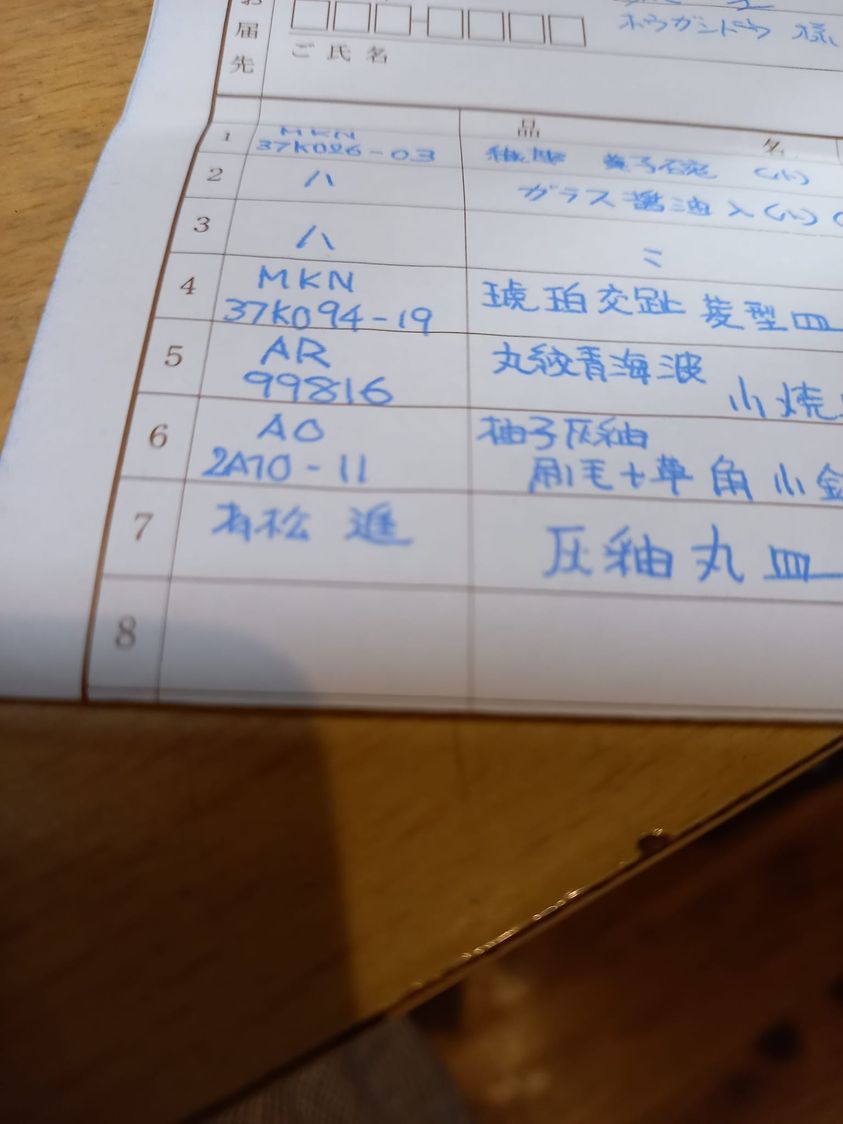 お届先
ボウガンドウ 様
ご氏名
品 名
1 MKN
37K026-03 黄子碗 (小)
2 〃 ガラス醤油入(小)(
3 〃 〃
4 MKN
37K094-19 琥珀交趾 菱型皿
5 AR 丸紋青海波
99816 小焼
6 AO 柚子灰釉
2A70-11 刷毛十草 角小
7 有松 進 灰釉丸皿
8